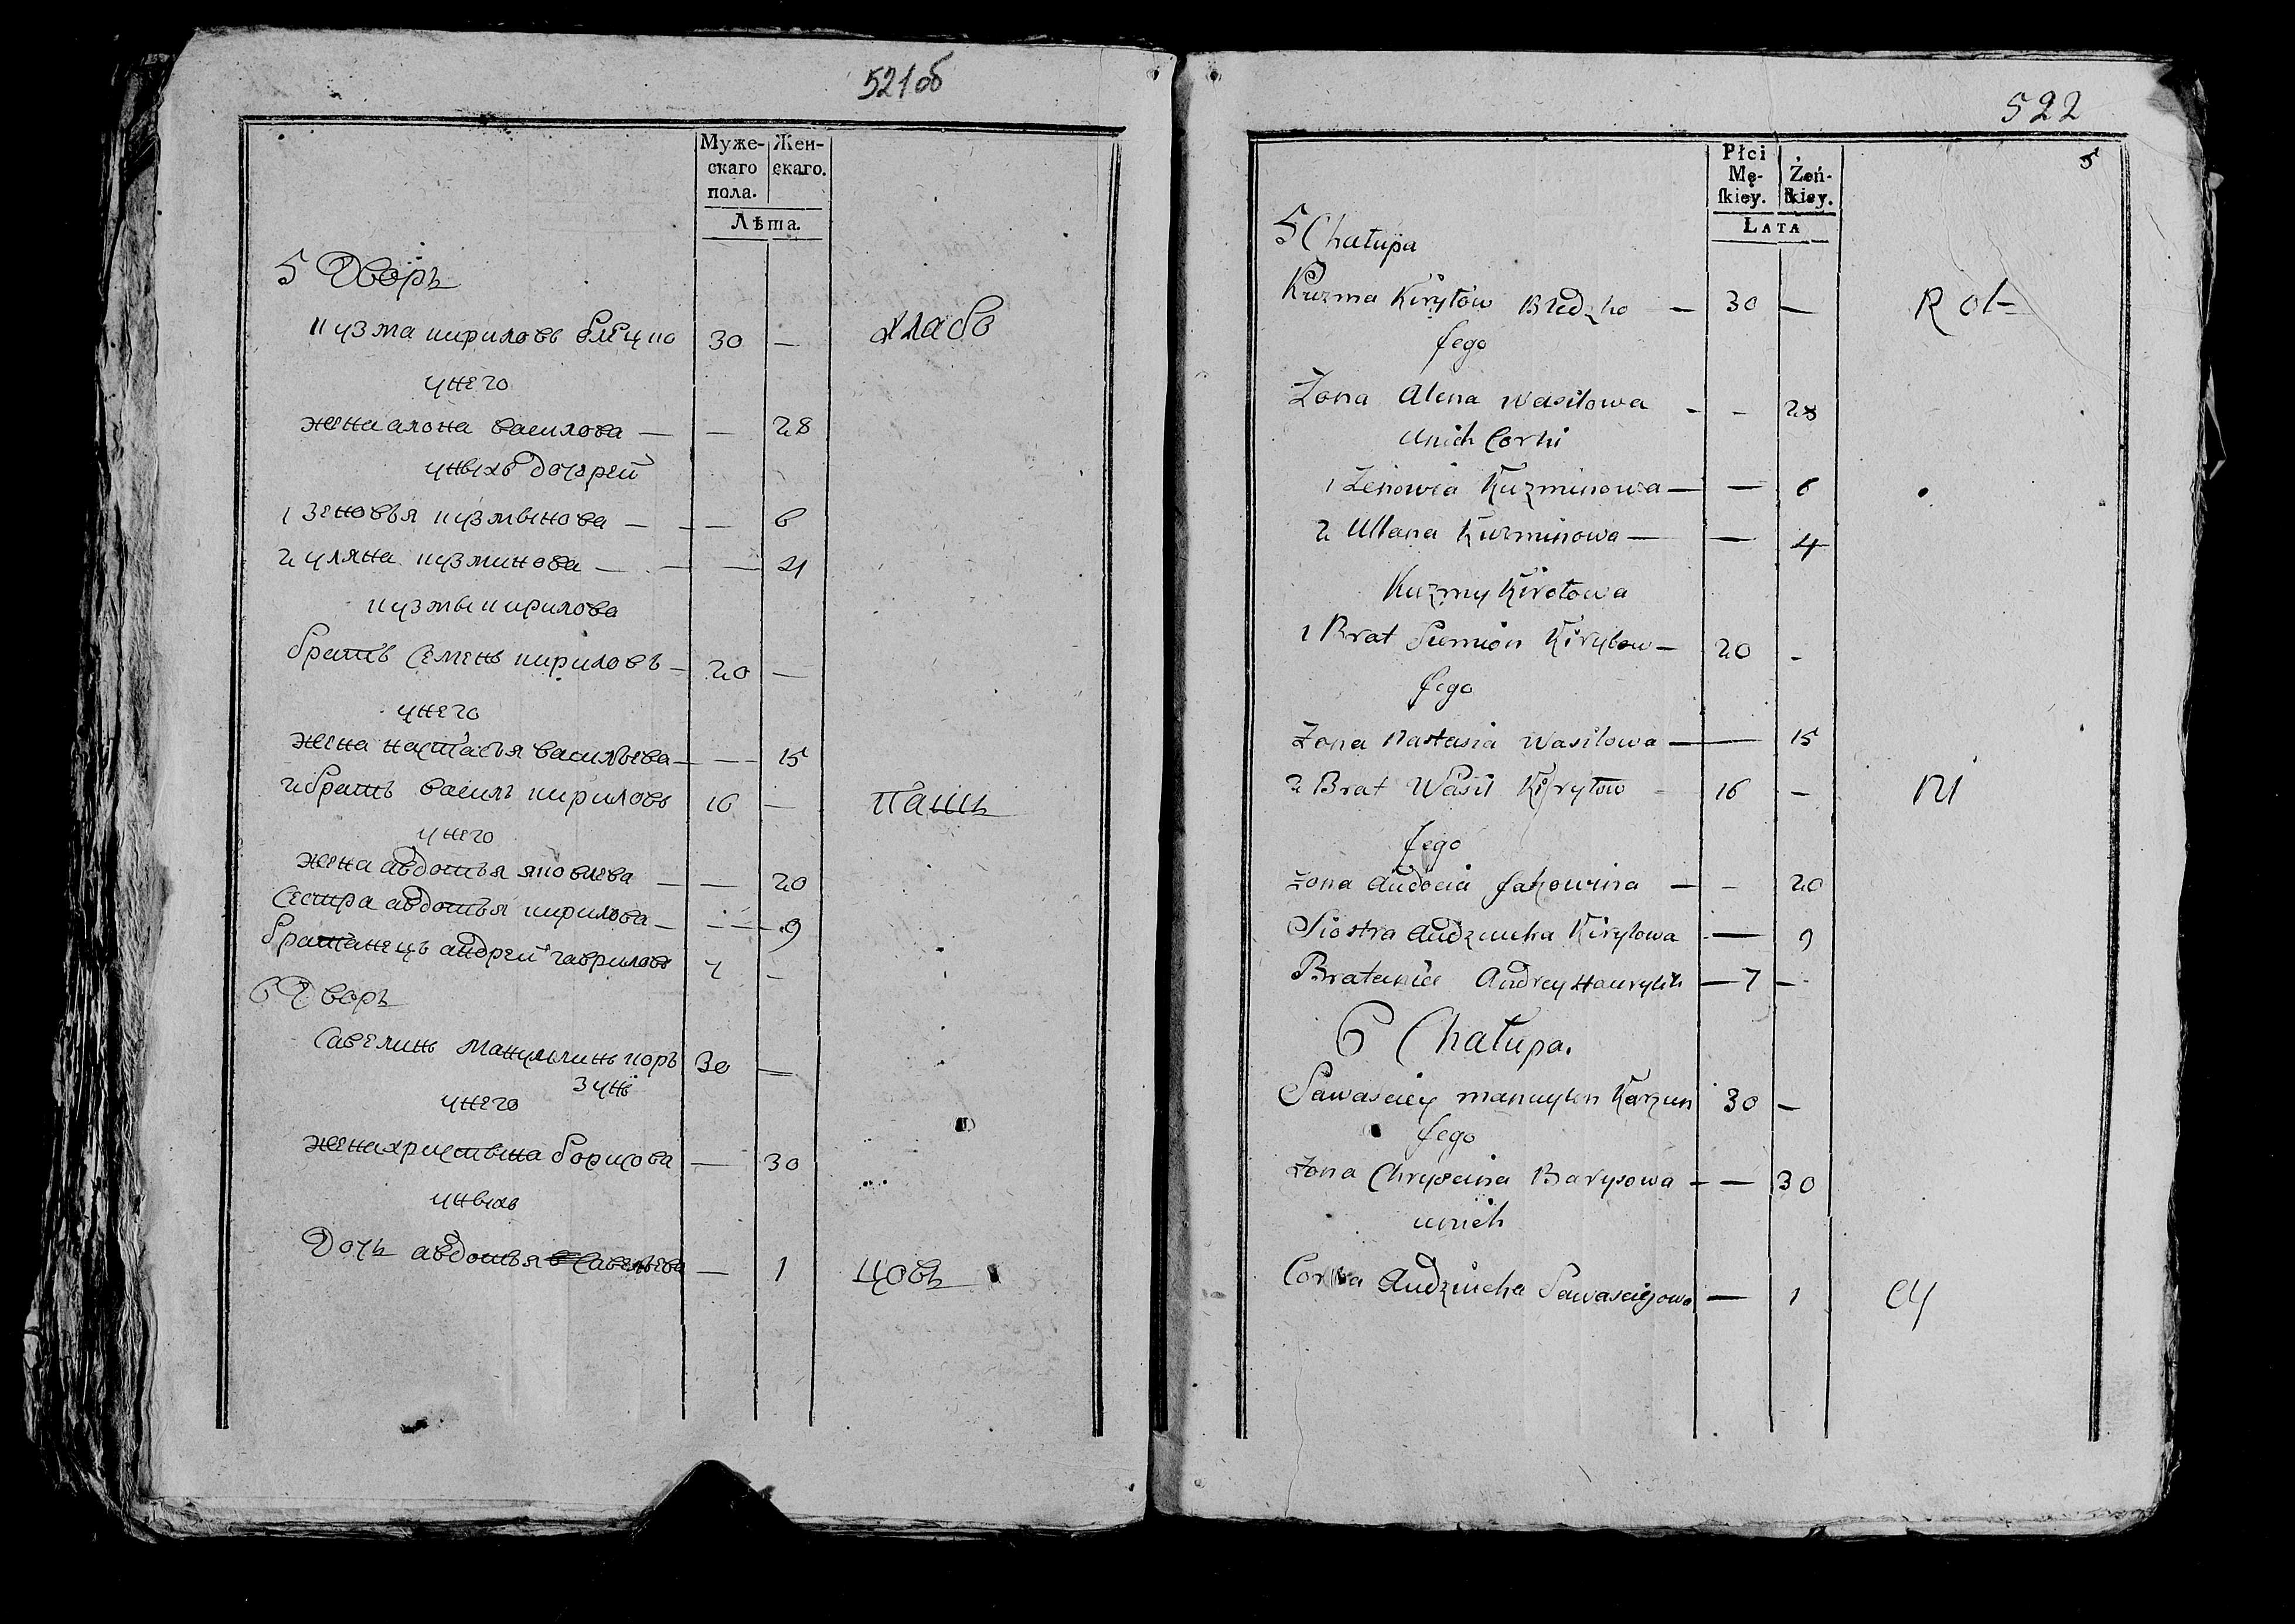 521об
Муже- Жен-
скаго скаго.
пола.
Лѣта.
5 Дворъ
кузма кириловъ 30 — хлабо
унего
жена алона василова — — 28
унихъ дочерей
1 зеновья кузминова — — 6
2 уляна кузминова — — 4
кузмы кирилова
братъ Семенъ кириловъ — 20 —
унего
жена настасья васильева — — 15
2 братъ василь кириловъ 16 — пашъ
унего
жена авдотья яковлева — — 20
Сестра авдотья кирилова — — 9
братанецъ андрей гавриловъ 7 —
6 Дворъ
Савелинъ манулинъ кор 30 —
зунъ
унего
жена христина борисова — 30
унихъ
Дочь авдотья Савельева — 1 цовъ
522
5
Płci
Mę- Żeń-
ſkiey. ſkiey.
LATA
5 Chałupa
Kuzma Kiryłow Bledzko — 30 — Rol=
Jego
Żona Alena Wasilowa — — 28
unich Corki
1 Zenowia Kuzminowa — — 6
2 Ullana Kuzminowa — — 4
Kuzmy Kirołowa
1 Brat Siemion Kiryłow — 20 —
Jego
Żona Nastasia Wasilowa — — 15
2 Brat Wasil Kiryłow — 16 — ni
Jego
Żona Audocia Jakowina — — 20
Siostra Audziucha Kiryłowa — 9
Bratanica Andrey Hauryłow — 7 —
6 Chałupa.
Sawasciey manuylen Karzun 30 —
Jego
Żona Chryscina Barysowa — — 30
unich
Corka Audziucha Sawasciejowa — 1 cy